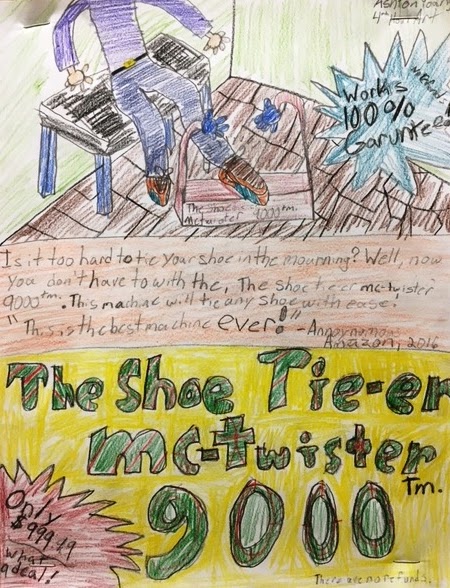 Ashton
4th Art
Works
100%
Garunteed!
The shoe
Mctwister 9000tm.
Is it too hard to tie your shoe in the mourning? Well, now
you don't have to with the, The shoe tieer mc-twister
9000tm. This machine will tie any shoe with ease!
"This is the best machine ever!" -Annoynomous
Amazon, 2016
The Shoe Tie-er
mc-twister
Tm.
9000
Only
$999.99
What
a deal!
There are no refunds.